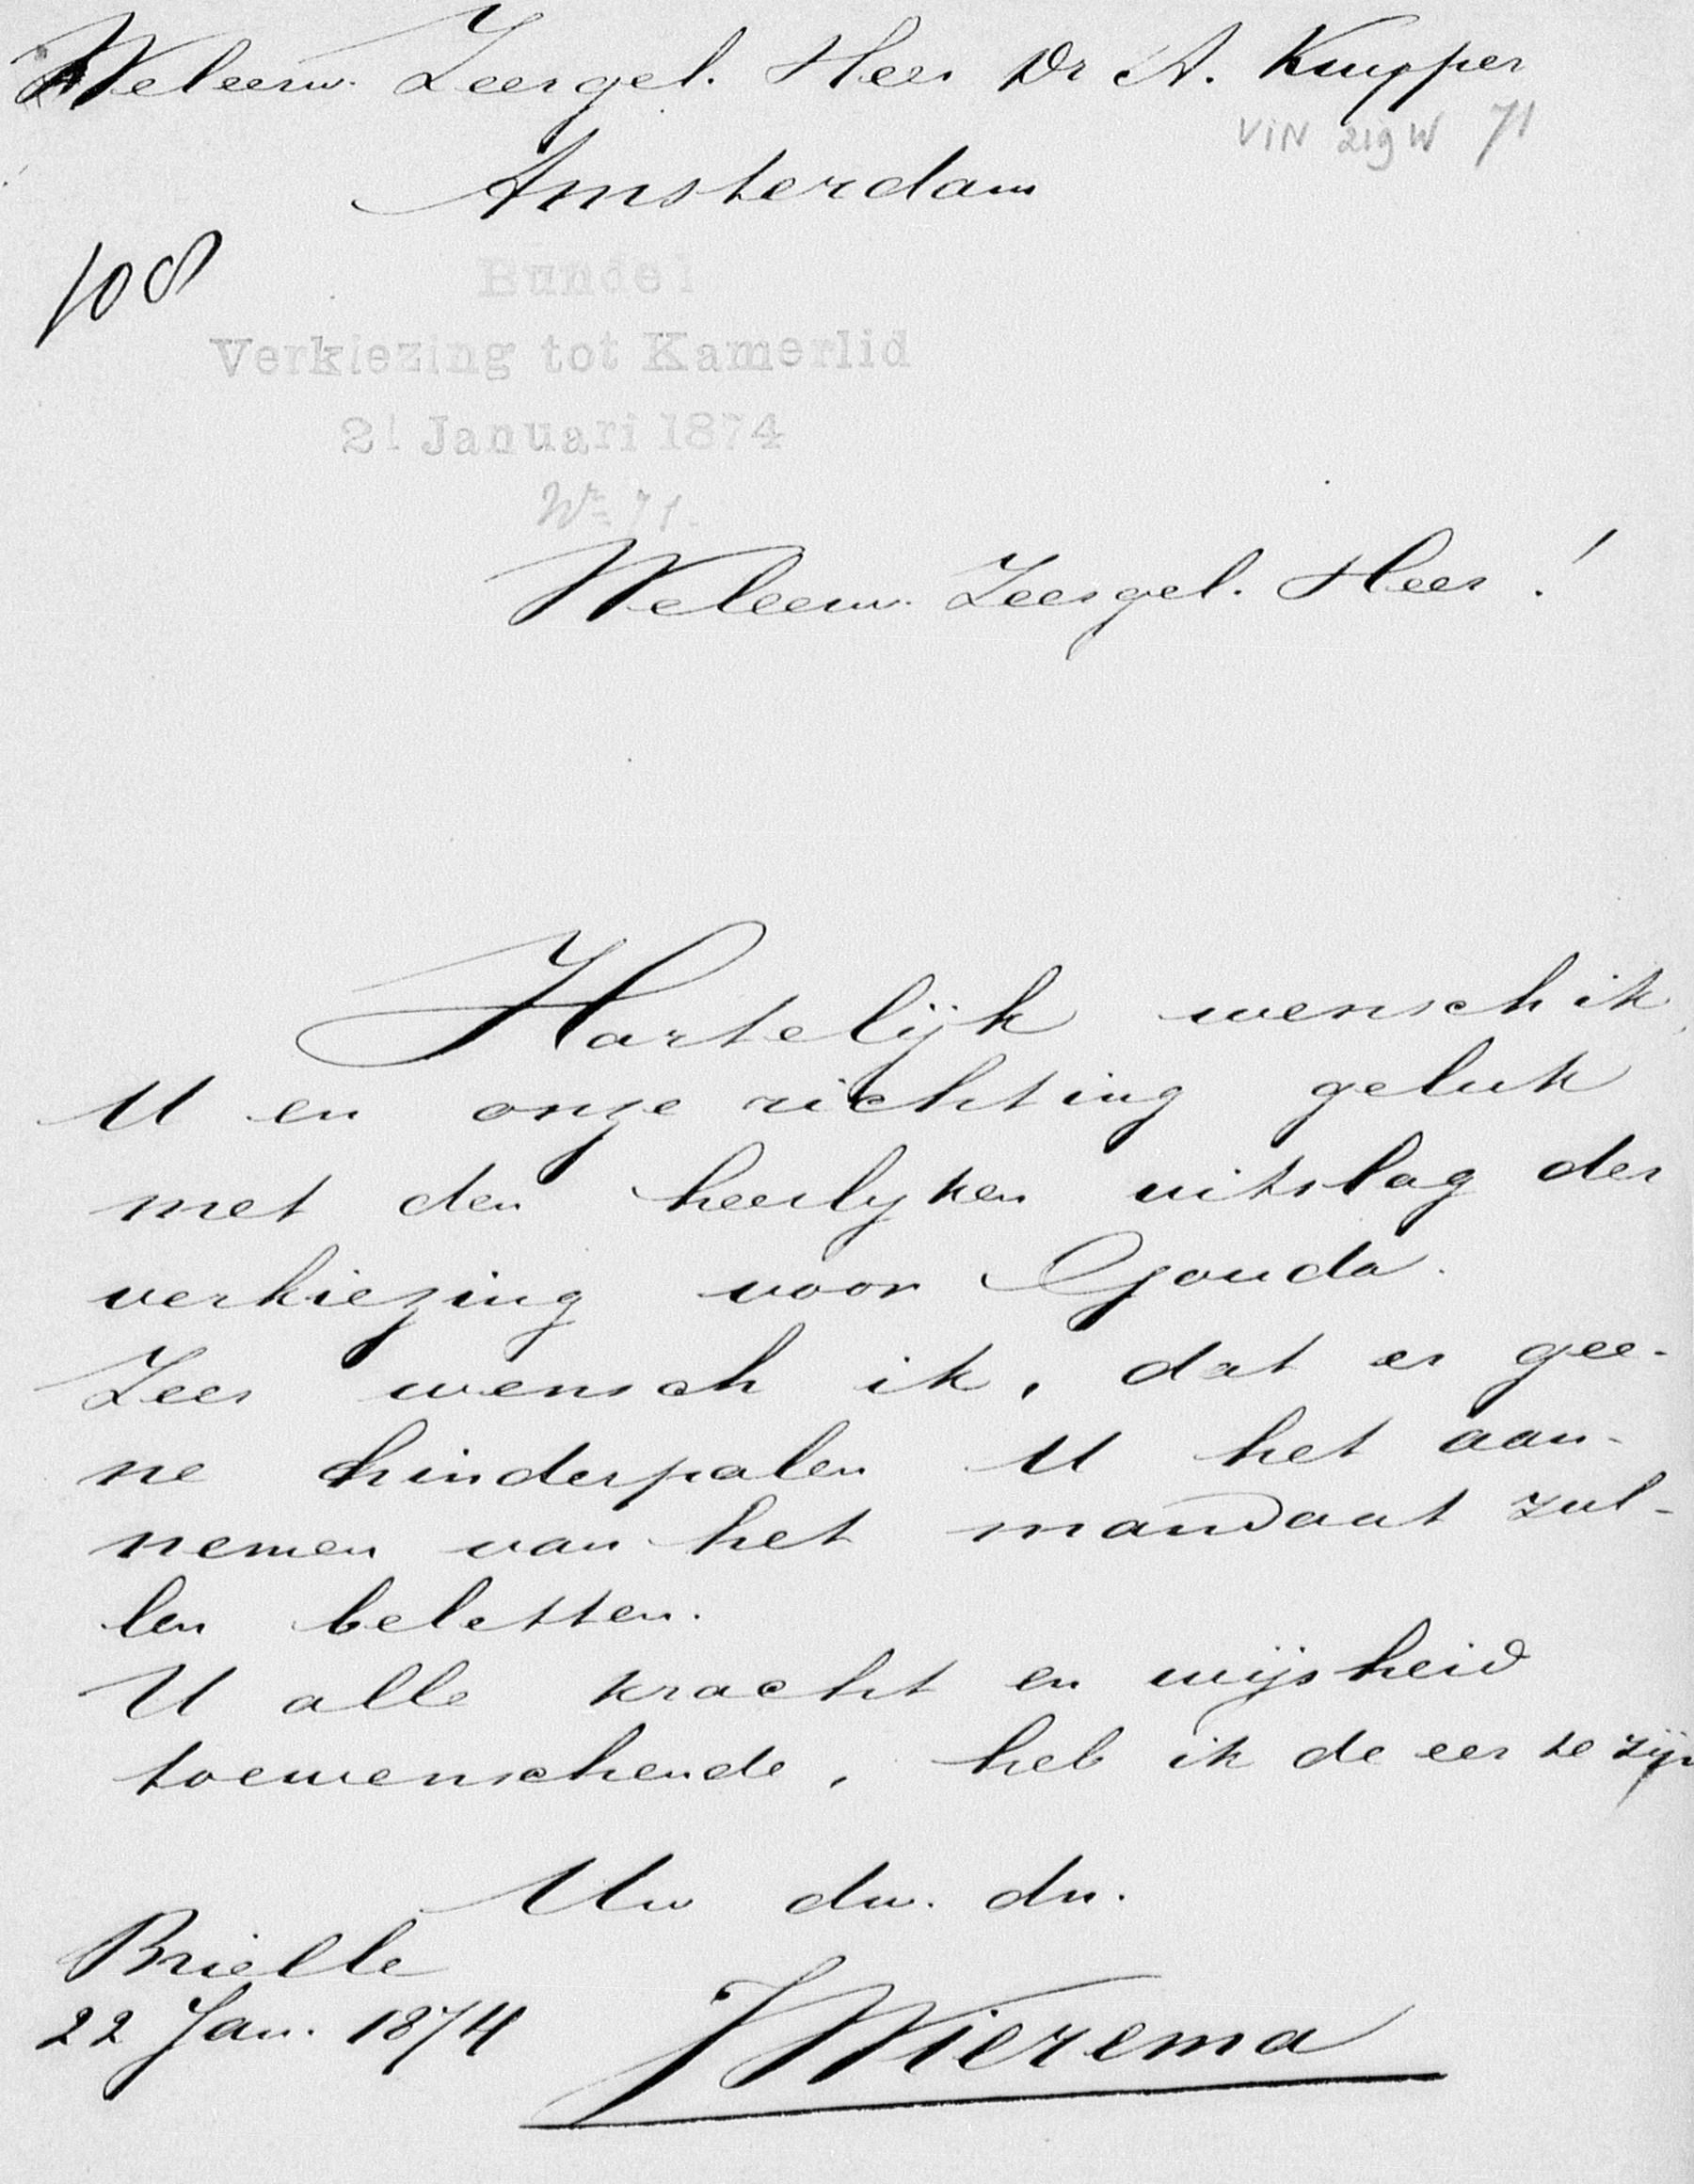 Weleerw. Zeergel. Heer Dr A. Kuyper
VIN 219 W 71
Amsterdam
108
Bundel
Verkiezing tot Kamerlid
21 Januari 1874
Nr 71.
Weleerw. Zeergel. Heer!
Hartelijk wensch ik
U en onze richting geluk
met den heerlyken uitslag der
verkiezing voor Gouda.
Zeer wensch ik, dat er gee-
ne hinderpalen U het aan-
nemen van het mandaat zul-
len beletten.
U alle kracht en wijsheid
toewenschende, heb ik de eer te zijn
Uw dw. dn.
Brielle
22 Jan. 1874
J Wierema